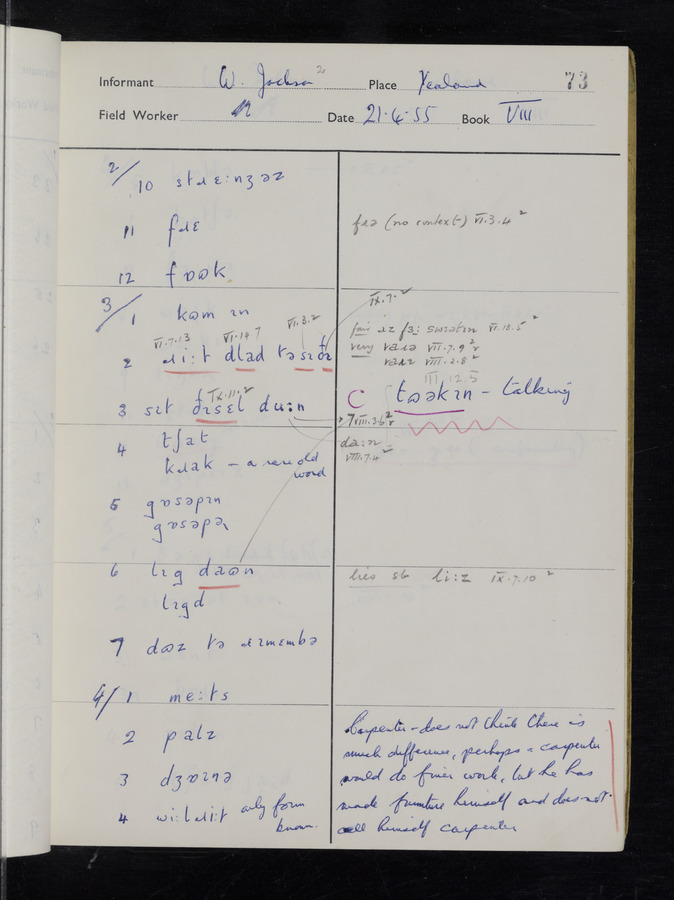 Informant W. Jackson 2 Place Yealand 73
Field Worker Date 21·4·55 Book VIII
2/10 stɹɛ:nʒəz
11 fɹɛ
fɹə (no context) VI.3.4 2
12 fʊək
IX.7. 2
3/1 kʊm ɪn
VI.7.13 VI.14 7 VI.3.2
2 ɹi:t dlad tə sɪðɪ
fair ɪz fɜ: VI.13.5 2
very VII.7.9 2
VIII.2.8 2
III.12.5
IX.11.2
3 sɪt ðɪsɛl du:n
C tɔəkɪn – talking
VIII.3.6 2
4 tʃat
da:n
VIII.7.4 2
kɹak – a rare old
word
5 gɒsəpɪn
gɒsəpə
6 lɪg daʊn
lies sb li:z IX.7.10 2
lɪgd
7 dʊz tə ɹɪmɛmbə
4/1 me:ts
2 palz
3 dʒɒɪnə
4 wi:lɹi:t only form
known.
Carpenter – does not think there is
much difference, perhaps a carpenter
would do finer work, but he has
made furniture himself and does not
call himself carpenter